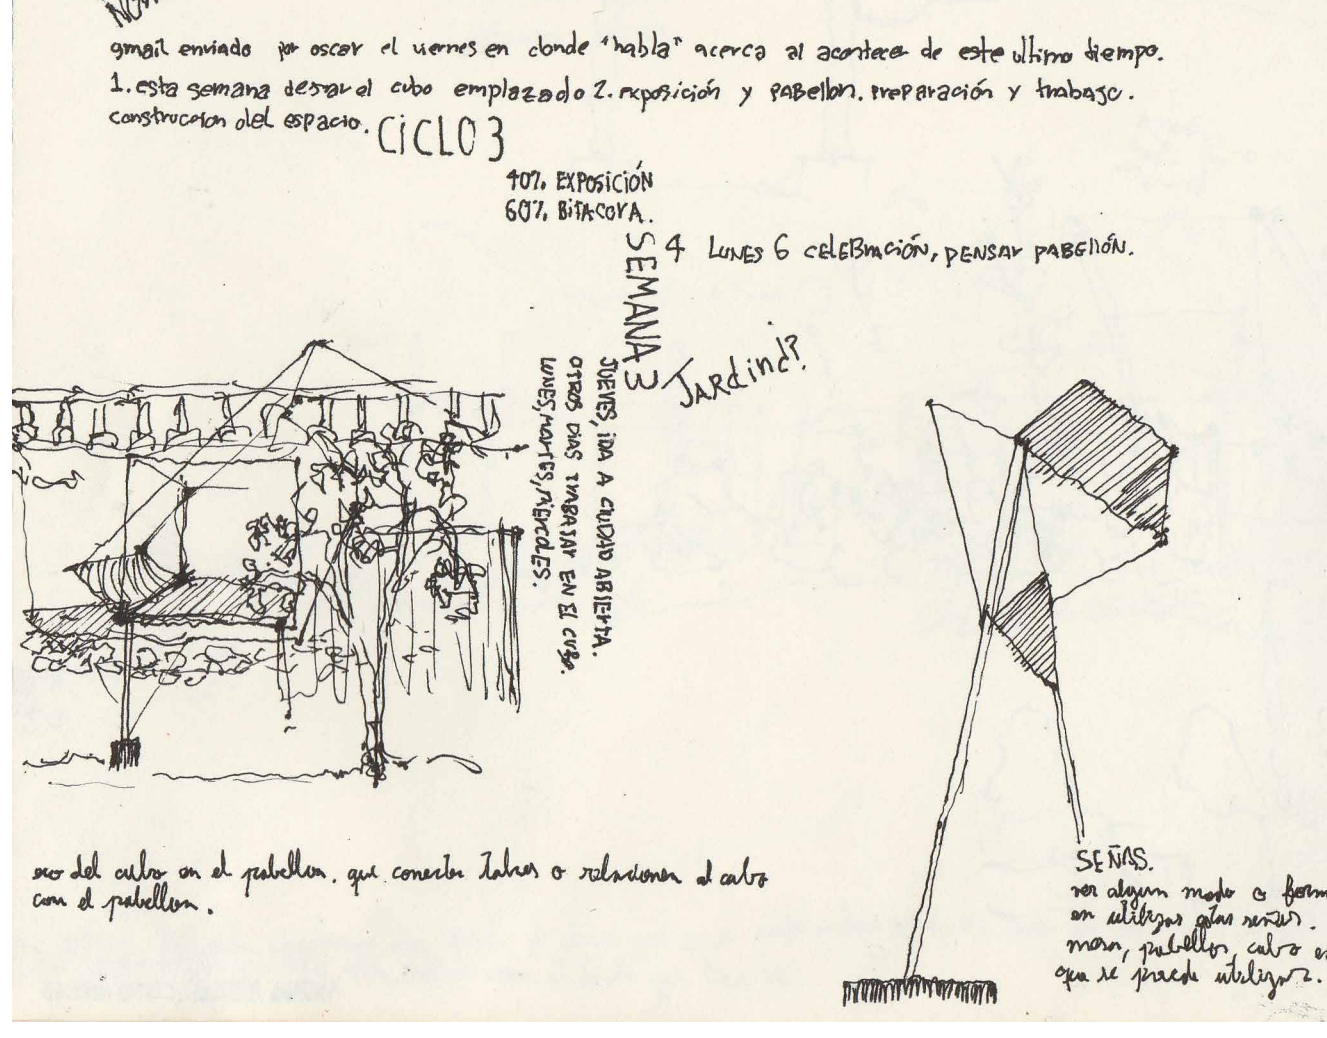 gmail enviado por oscar el viernes en donde "habla" acerca al acontecer de este ultimo tiempo.
1. esta semana desde el cubo emplazado 2. exposición y pabellon. preparación y trabajo.
construccion del espacio.
CiCLO 3
40% EXPOSICIÓN
60% BITACORA.
SEMANA 3
4 LUNES 6 CELEBRACIÓN, PENSAR PABELLÓN.
JARDIND?
JUEVES, IDA A CIUDAD ABIERTA.
OTROS DIAS TRABAJAR EN EL CUBO.
LUNES, MARTES, MIERCOLES.
del cubo en el pabellon. que conecten tales o relacionen al cubo
con el pabellon.
SEÑAS.
ver algun modo o form
en utilizar estas señas.
mesa, pabellon, cubo
que se puede utilizar.